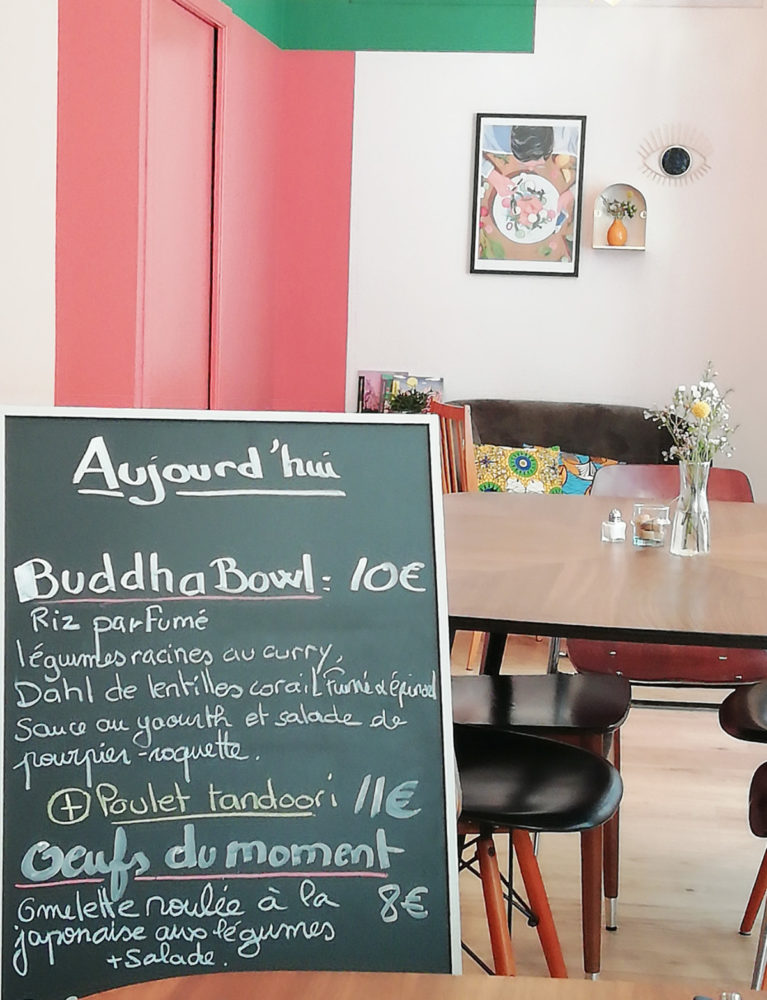 Aujourd'hui
Buddha Bowl : 10€
Riz parfumé
légumes racines au curry,
Dahl de lentilles corail fumé &
Sauce au yaourth et salade de
pourpier-roquette.
+ Poulet tandoori 11€
Oeufs du moment
Omelette roulée à la 8€
japonaise aux légumes
+ Salade.